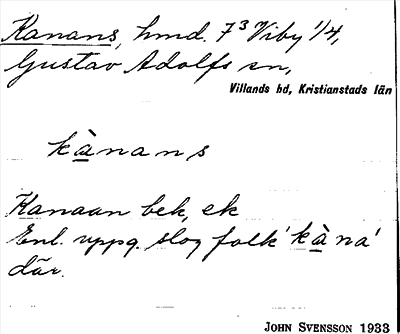 Kanans, hmd. 7³ Viby 1/4,
Gustav Adolfs sn,
Villands hd, Kristianstads län
kànans
Kanaan bek, ek
Enl. uppg. slog folk 'kàna'
där.
JOHN SVENSSON 1933